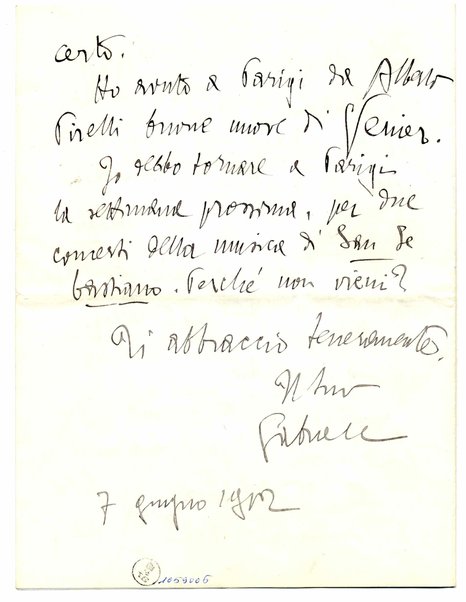 certo.
Ho avuto a Parigi da Alberto
Pirelli buone nuove di Venier.
Io debbo tornare a Parigi
la settimana prossima, per due
concerti della musica di San Se
bastiano. Perché non vieni?
Ti abbraccio teneramente.
Il tuo
Gabriele
7 giugno 1912
1059006